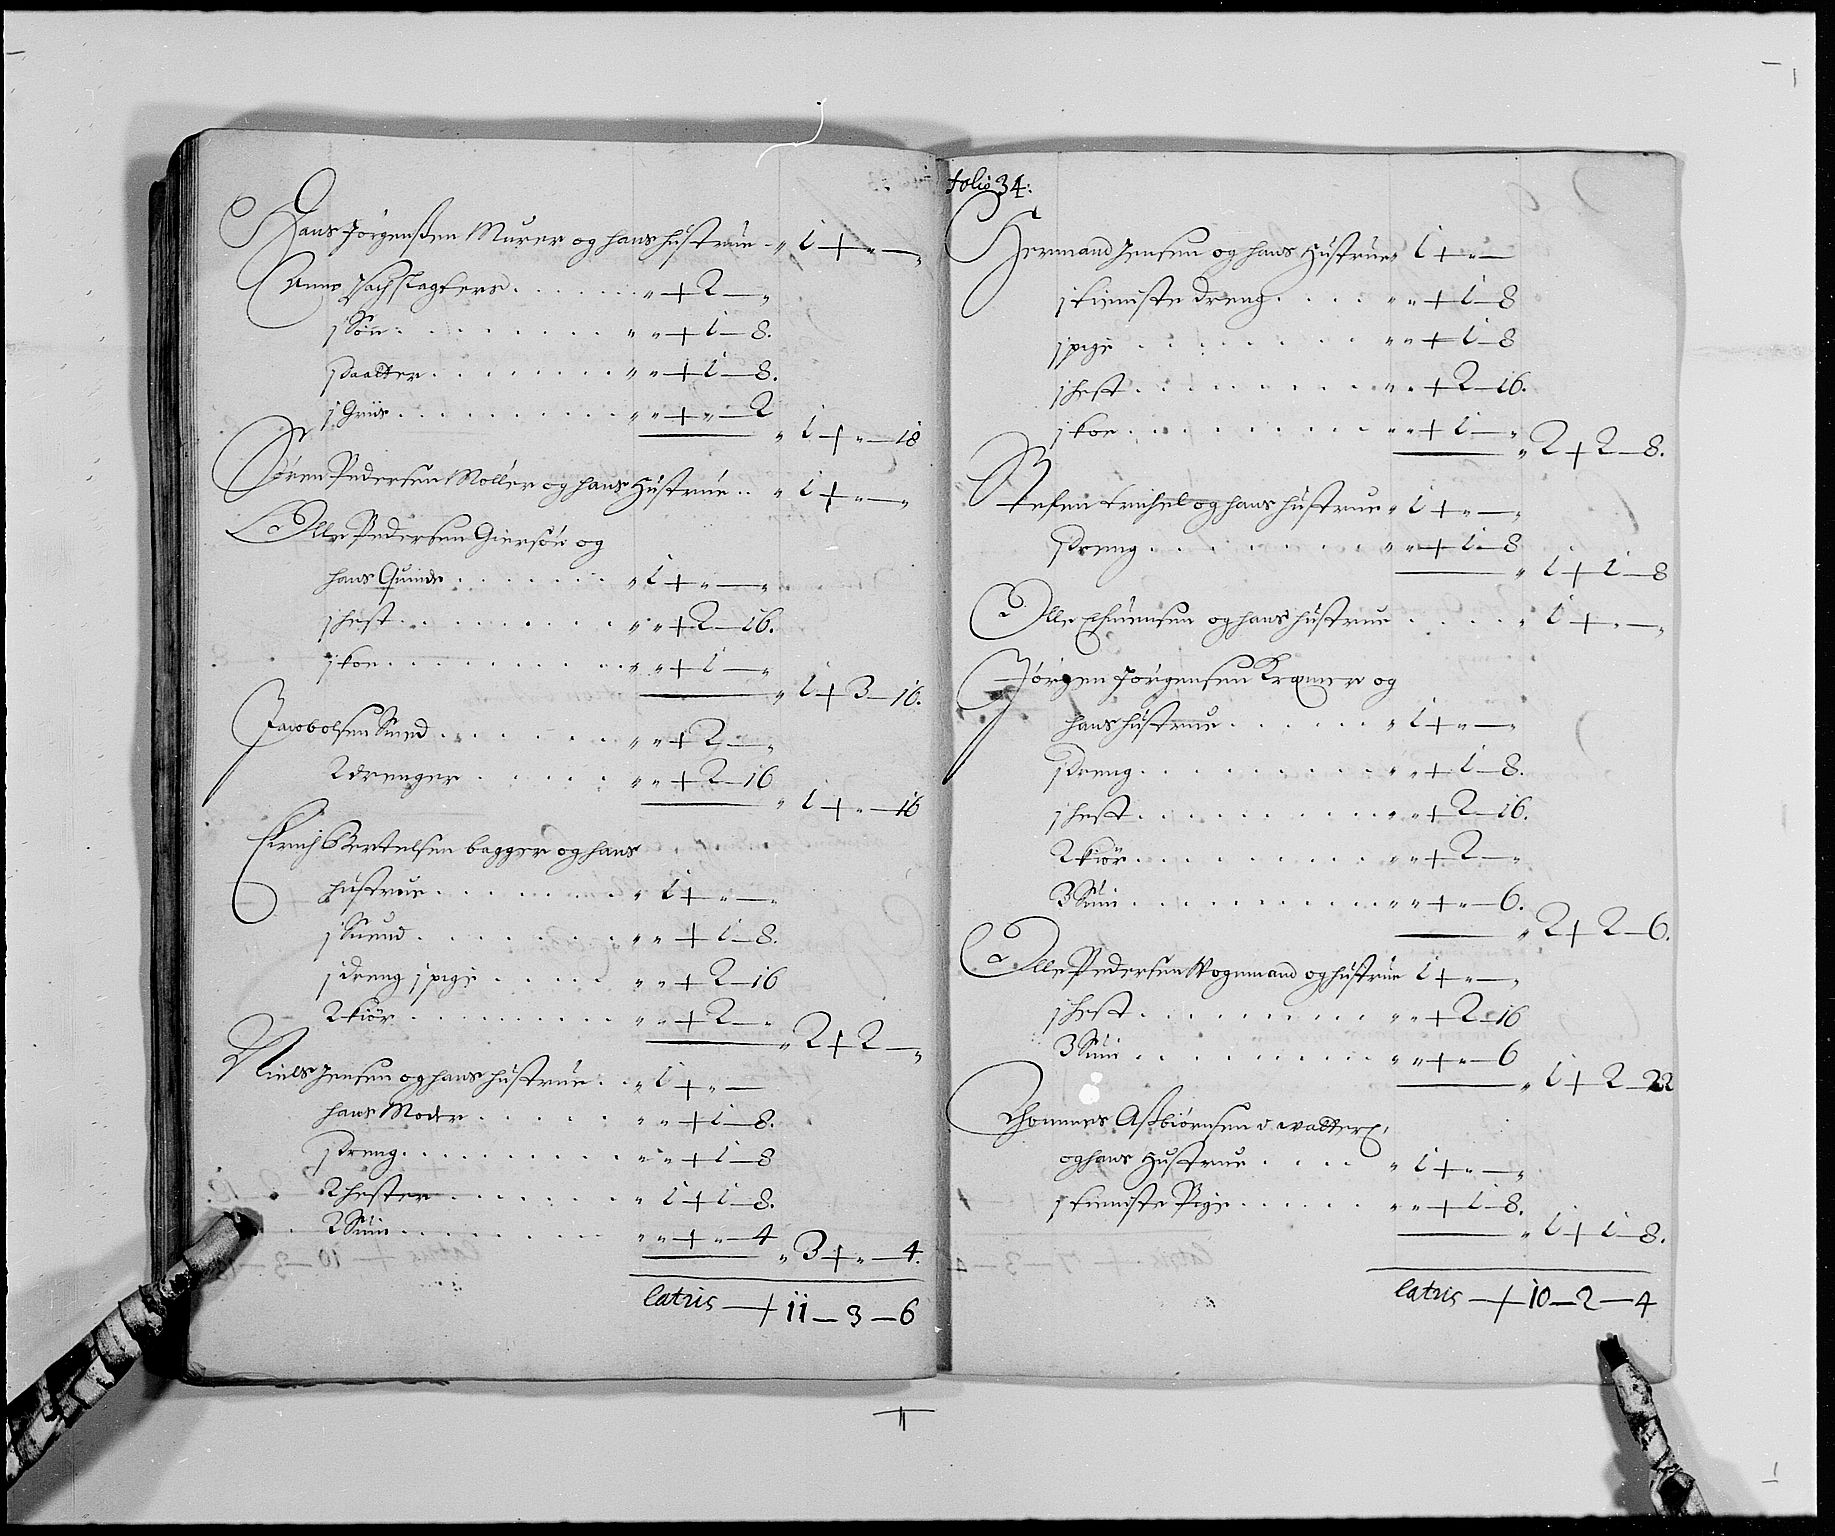 Hans Jörgenßen Murer og hans hustrüe - „ 1 + „ — „
Anne Isach slagters . . . . . . „ + 2 — „
1 Sön . . . . . . . . „ „ + 1 — 8.
1 daatter . . . . . . . . „ „ + 1 — 8.
1 Griis . . . . . . . . . „ „ + „ — 2
„ 1 + „ — 18
Sören Pedersen Möller og hans Hustrüe . . „ 1 + „ — „
Olle Pedersen Giersöe og
hans Quinde . . . . . . „ 1 + „ — „
1 hest . . . . . . . . . „ „ + 2 — 16.
1 koe . . . . . . . . . . „ „ + 1 — „
„ 1 + 3 — 16.
Jacob olsen Smed . . . . . . „ „ + 2 — „
2 drenger . . . . . . „ „ + 2 — 16
„ 1 + „ — 16
Eirich Bertelsen bagger og hans
hustrue . . . . . . . . „ 1 + „ — „
1 Suend . . . . . . . . „ „ + 1 — 8.
1 dreng 1 pige . . . . . „ „ + 2 — 16
2 kiör . . . . . . . . . „ „ + 2 — „
„ 2 + 2 — „
Niels Jensen og hans hustrüe . . „ 1 + „ —
hans Moder . . . . . . „ „ + 1 — 8.
1 dreng . . . . . . . . . . „ „ + 1 — 8
2 hester . . . . . . . „ 1 + 1 — 8.
2 Süin . . . . . . . . . „ „ + „ — 4
„ 3 + „ — 4.
latris — + 11 — 3 — 6
folio 34:
Hermand Jensen og hans Hustrue „ 1 + „ —
1 tieniste dreng . . . . „ „ + 1 — 8
1 pige . . . . . . . . . „ „ + 1 — 8
1 hest . . . . . . . . . „ „ + 2 — 16.
1 koe . . . . . . . . . . „ „ + 1 — „
„ 2 + 2 — 8.
Stefen og hans hustrue „ 1 + „ — „
1 dreng . . . . . . . . . „ „ + 1 — 8
„ 1 + 1 — 8
Olle og hans hustrue . . . . . „ 1 + „ — „
Jörgen Jörgensen Kræmer og
hans hustrue . . . . . . „ 1 + „ — „
1 dreng . . . . . . . . . . „ „ + 1 — 8.
1 hest . . . . . . . . . . „ „ + 2 — 16.
2 kiör . . . . . . . . . . „ „ + 2 — „
3 Süin . . . . . . . . . . „ „ + „ — 6.
„ 2 + 2 — 6.
Olle Pedersen Wognmand og hustrüe 1 + „ — „
1 hest . . . . . . . . . . „ „ + 2 — 16
3 Süin . . . . . . . . . . „ „ + „ — 6
„ 1 + 2 — 22
Thommes Aßbiörnsen
og hans Hustrue . . . . „ 1 + „ — „
1 tieniste Pige . . . . . . „ „ + 1 — 8.
„ 1 + 1 — 8.
latris — + 10 — 2 — 4